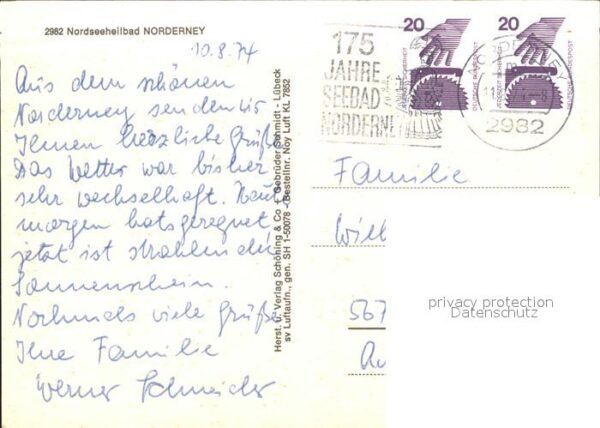 2982 Nordseeheilbad NORDERNEY
10.8.74
Aus dem schönen
Norderney senden wir
Ihnen herzliche Grüße
Das Wetter war bisher
sehr wechselhaft. Heut
morgen hats geregnet
jetzt ist strahlender
Sonnenschein.
Nochmals viele Grüße
Ihre Familie
Werner Schneider
Herst. u. Verlag Schöning & Co + Gebrüder Schmidt - Lübeck
sv Luftaufn., gen. SH 1-50078 - Bestellnr. Noy Luft KL 7852
175
JAHRE
SEEBAD
NORDERNEY
20
JEDERZEIT SICHERHEIT
DEUTSCHE BUNDESPOST
20
JEDERZEIT SICHERHEIT
DEUTSCHE BUNDESPOST
2982
Familie
567
privacy protection
Datenschutz